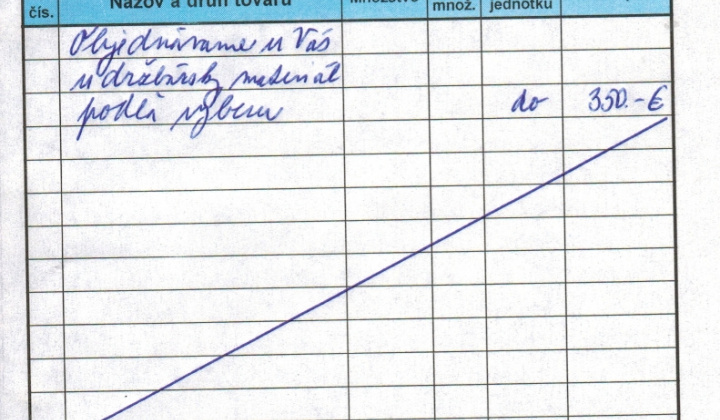 čís. Názov a druh tovaru Množstvo množ. jednotku
Objednávame u Vás
udržbársky materiál
podľa výberu do 350.-€